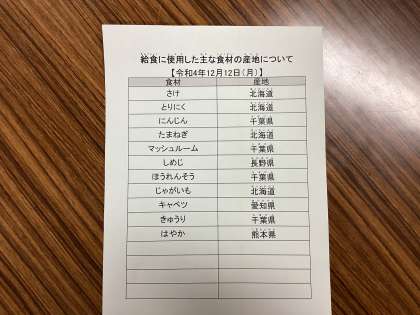 給食に使用した主な食材の産地について
【令和4年12月12日(月)】
食材 産地
さけ 北海道
とりにく 北海道
にんじん 千葉県
たまねぎ 北海道
マッシュルーム 千葉県
しめじ 長野県
ほうれんそう 千葉県
じゃがいも 北海道
キャベツ 愛知県
きゅうり 千葉県
はやか 熊本県